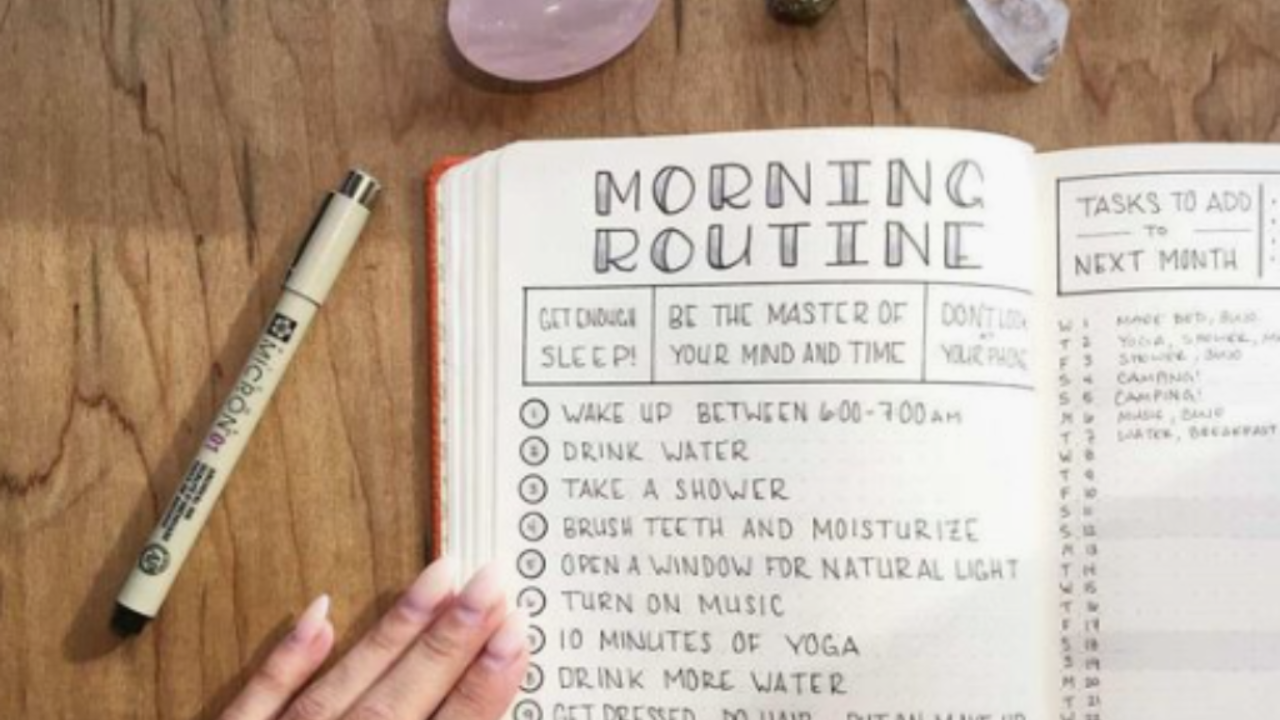 MORNING
ROUTINE
GET ENOUGH
SLEEP!
BE THE MASTER OF
YOUR MIND AND TIME
DON'T LOOK
AT
YOUR PHONE
① WAKE UP BETWEEN 6:00-7:00 AM
② DRINK WATER
③ TAKE A SHOWER
④ BRUSH TEETH AND MOISTURIZE
⑤ OPEN A WINDOW FOR NATURAL LIGHT
⑥ TURN ON MUSIC
⑦ 10 MINUTES OF YOGA
⑧ DRINK MORE WATER
⑨ GET DRESSED, DO HAIR, PUT ON MAKE UP
TASKS TO ADD
TO
NEXT MONTH
W 1 MADE BED, BUJO
T 2 YOGA, SHOWER,
F 3 SHOWER, BUJO
S 4 CAMPING!
S 5 CAMPING!
M 6 MUSIC, BUJO
T 7 WATER, BREAKFAST
W 8
T 9
F 10
S 11
S 12
M 13
T 14
W 15
T 16
F 17
S 18
S 19
M 20
T 21
W 22
MICRON 01